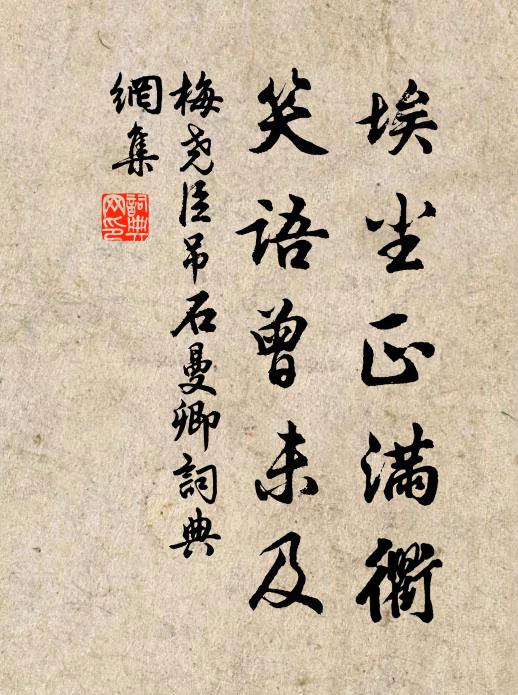 埃尘正满衢
笑語曾未及
梅尧臣吊石曼卿詞典
網集
詞典
网印